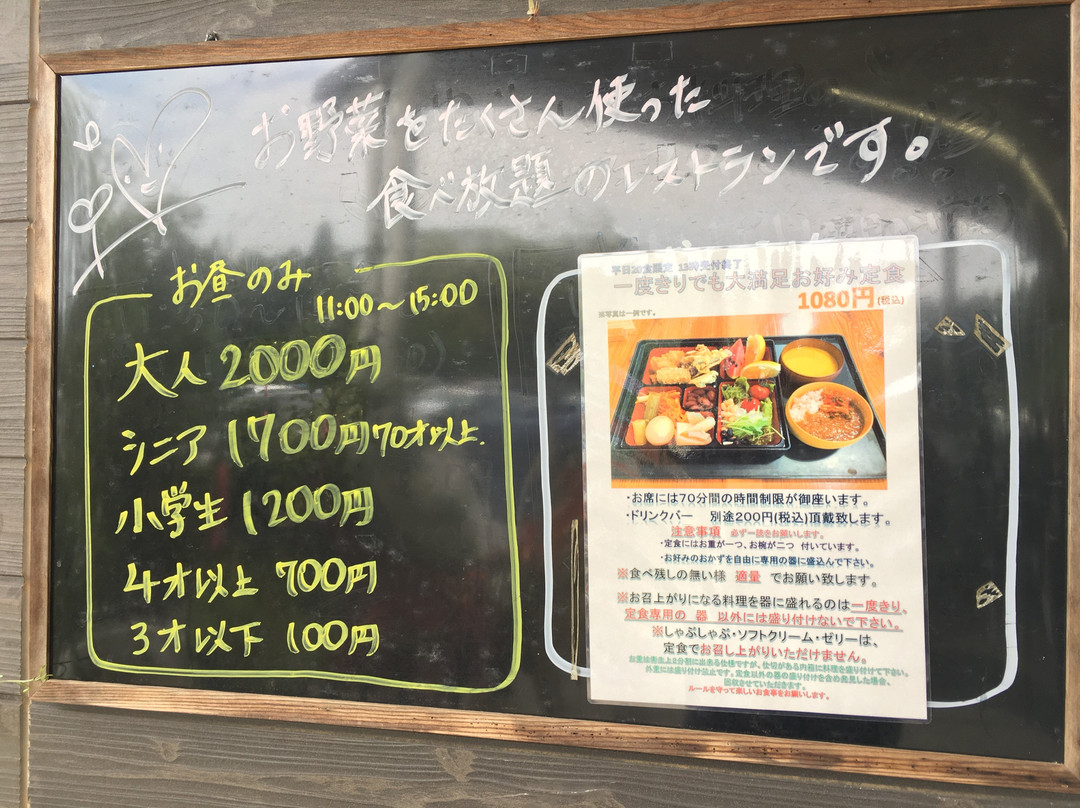 お野菜をたくさん使った
食べ放題のレストランです。
お昼のみ
11:00～15:00
大人 2000円
シニア 1700円 70才以上.
小学生 1200円
4才以上 700円
3才以下 100円
平日20食限定 13時受付終了
一度きりでも大満足お好み定食
1080円(税込)
※写真は一例です。
・お席には70分間の時間制限が御座います。
・ドリンクバー 別途200円(税込)頂戴致します。
注意事項 必ず一読をお願いします。
・定食にはお重が一つ、お椀が二つ 付いています。
・お好みのおかずを自由に専用の器に盛込んで下さい。
※食べ残しの無い様 適量 でお願い致します。
※お召上がりになる料理を器に盛れるのは一度きり、
定食専用の 器 以外には盛り付けないで下さい。
※しゃぶしゃぶ・ソフトクリーム・ゼリーは、
定食でお召し上がりいただけません。
ルールを守って楽しいお食事をお願いします。